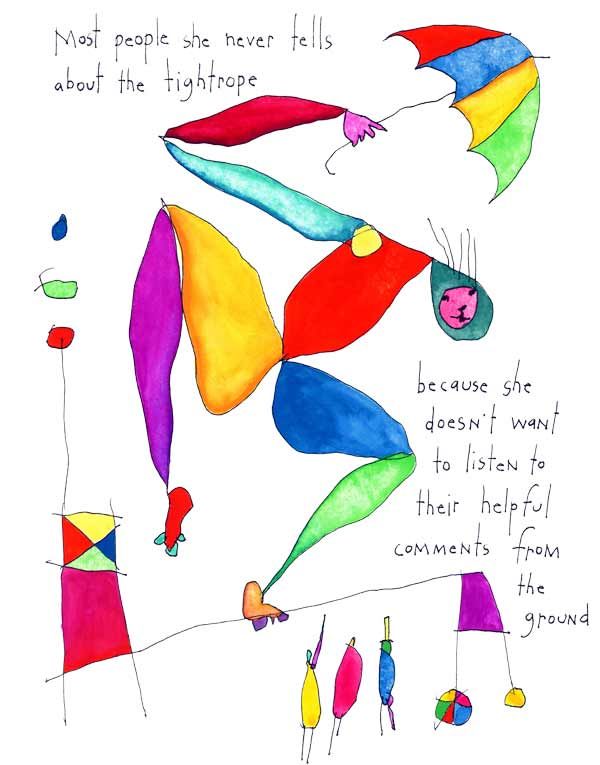 Most people she never tells
about the tightrope
because she
doesn't want
to listen to
their helpful
comments from
the
ground